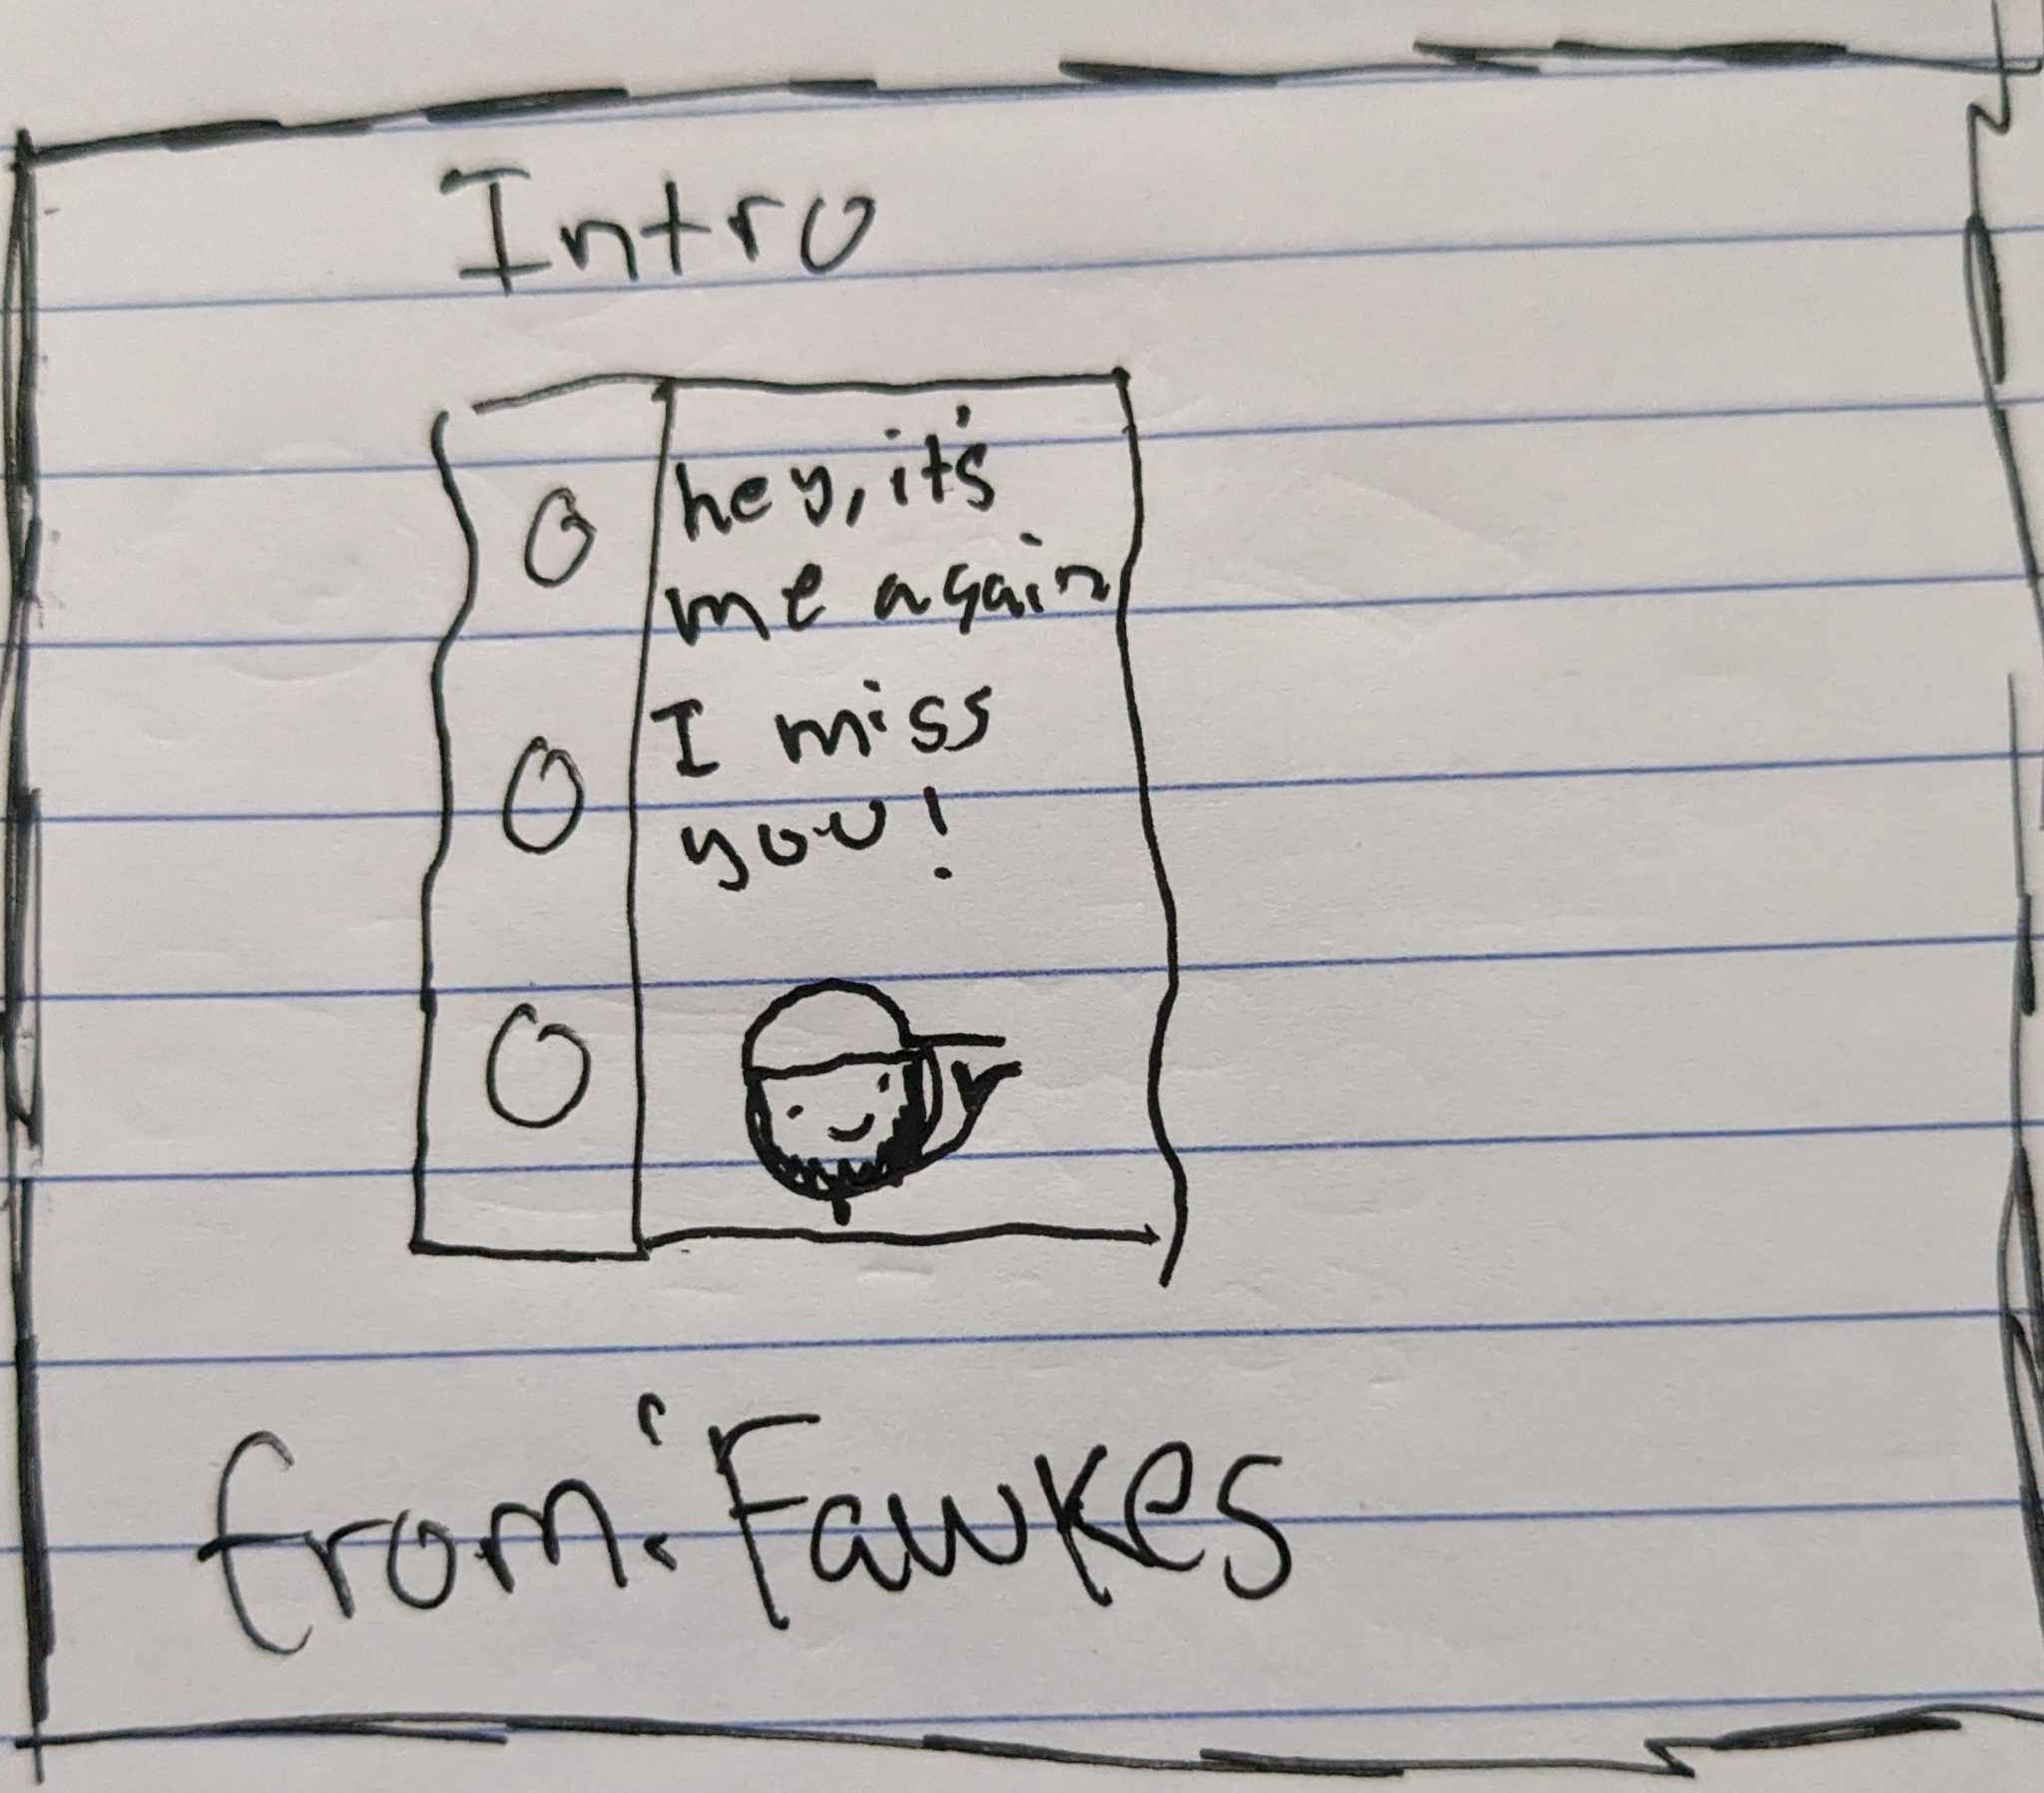 Intro
hey, it's
me again
I miss
you!
from: Fawkes